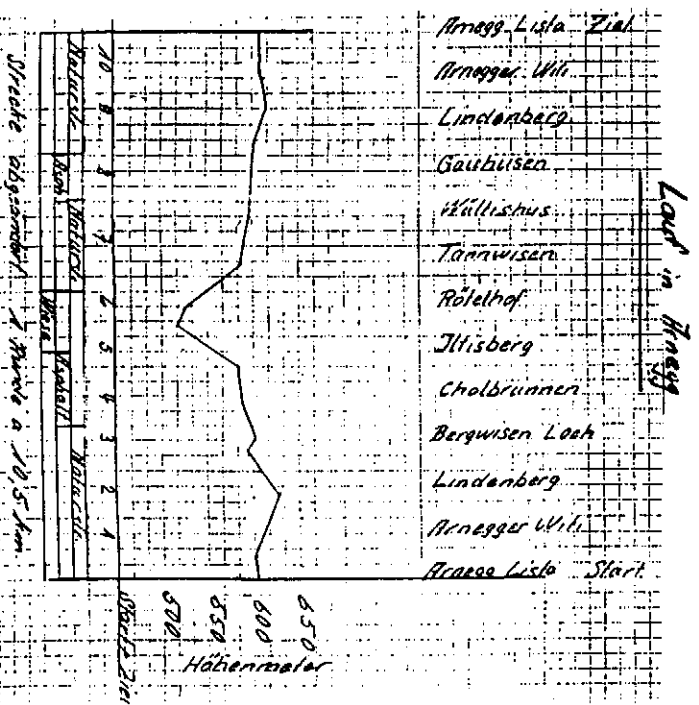 Lauf in Arnegg
Arnegg Lista Ziel
Arnegger Wili
Lindenberg
Gaishusen
Wültishus
Tannwisen
Rötelhof
Iltisberg
Cholbrunnen
Bergwisen Loch
Lindenberg
Arnegger Wili
Arnegg Lista Start
650
600
550
500
Höhenmeter
Start + Ziel
10
9
8
7
6
5
4
3
2
1
Naturstr.
Asph.
Naturstr.
Wiese
Asphalt
Naturstr.
Strecke 1 Runde a 10,5 km